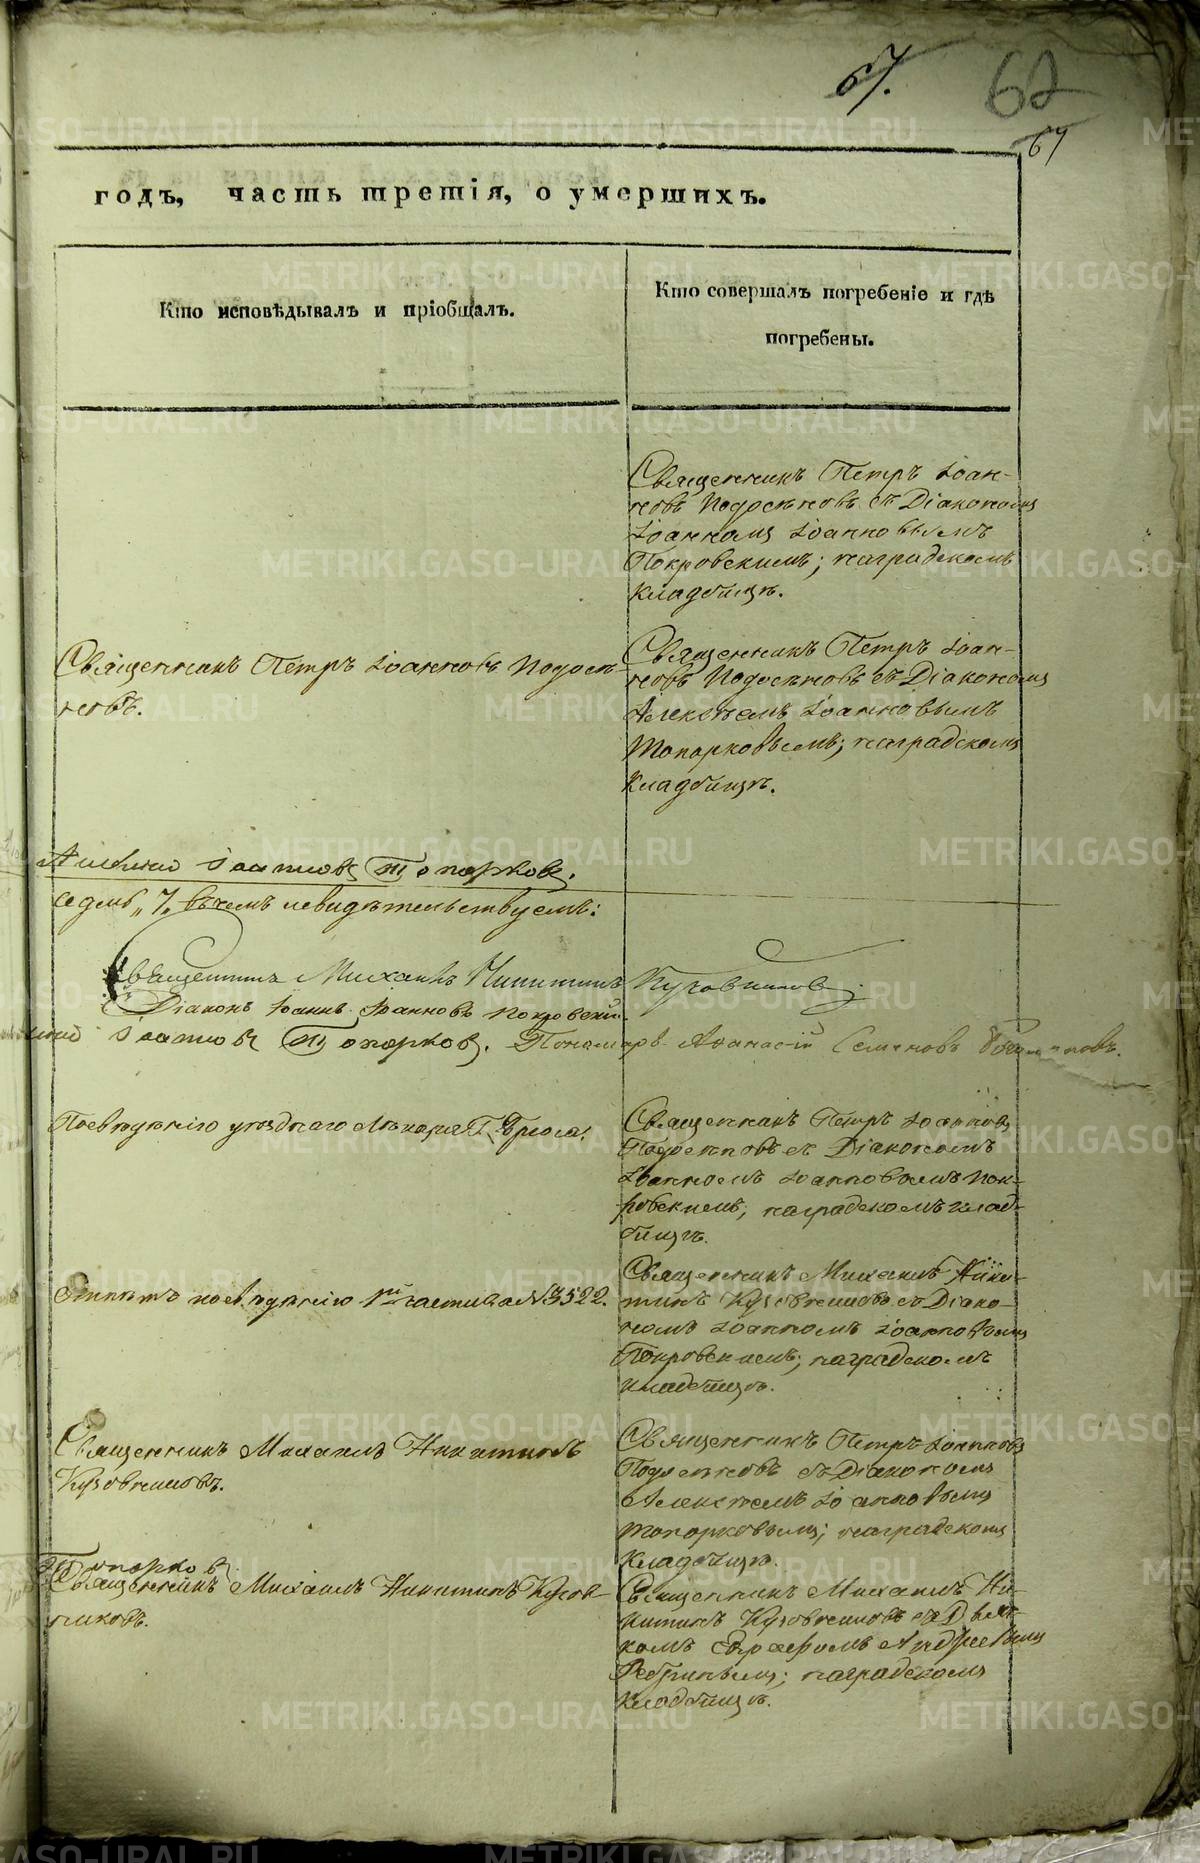 67.
62
67
годъ, часть третія, о умершихъ.
Кто исповѣдывалъ и пріобщалъ.
Кто совершалъ погребеніе и гдѣ
погребены.
Священникъ Петръ Іоан-
новъ Подосѣновъ съ Діакономъ
Іоанномъ Іоанновымъ
Покровскимъ; наградскомъ
кладбищѣ.
Священникъ Петръ Іоанновъ Подосѣ-
новъ.
Священникъ Петръ Іоан-
новъ Подосѣновъ съ Діакономъ
Алексѣемъ Іоанновымъ
Топорковымъ; наградскомъ
кладбищѣ.
Іоанновъ Топорковъ.
седмь „7„ въ чемъ и свидѣтельствуемъ:
Священникъ Михаилъ Никитинъ
Діаконъ Іоаннъ Іоанновъ Покровскій.
Іоанновъ Топорковъ. Пономарь Афанасій Семеновъ
По свѣдѣнію уѣзднаго Лѣкаря Г.
Священникъ Петръ Іоанновъ
Подосѣновъ съ Діакономъ
Іоанномъ Іоанновымъ Пок-
ровскимъ; наградскомъ клад-
бищѣ.
Отпѣтъ по свѣдѣнію 1й части за №3522.
Священникъ Михаилъ Ники-
тинъ Кузовниковъ съ Діако-
номъ Іоанномъ Іоанновымъ
Покровскимъ; наградскомъ
кладбищѣ.
Священникъ Михаилъ Никитинъ
Кузовниковъ.
Священникъ Петръ Іоанновъ
Подосѣновъ съ Діакономъ
Алексѣемъ Іоанновымъ
Топорковымъ; наградскомъ
кладбищѣ.
Топорковъ
Священникъ Михаилъ Никитинъ Кузов-
никовъ.
Священникъ Михаилъ Ни-
китинъ Кузовниковъ съ Дьяч-
комъ Андреевымъ
наградскомъ
кладбищѣ.
METRIKI.GASO-URAL.RU